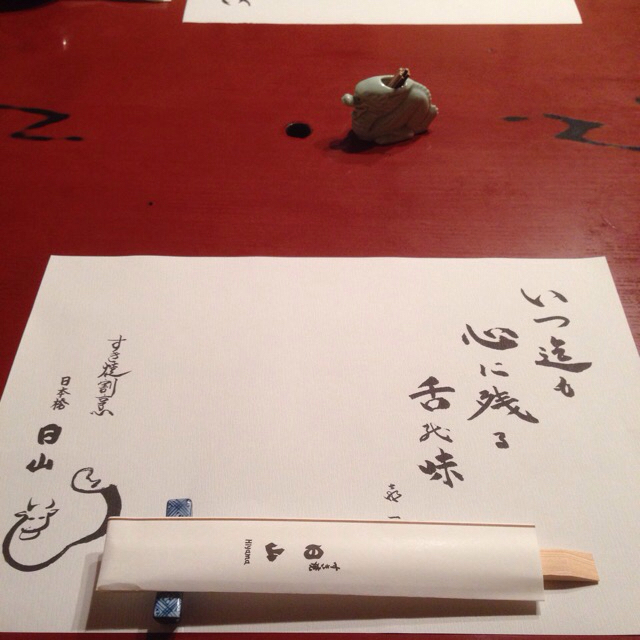 いつ迄も
心に残る
舌の味
すき焼割烹
日本橋
日山
すき焼
日山
Hiyama